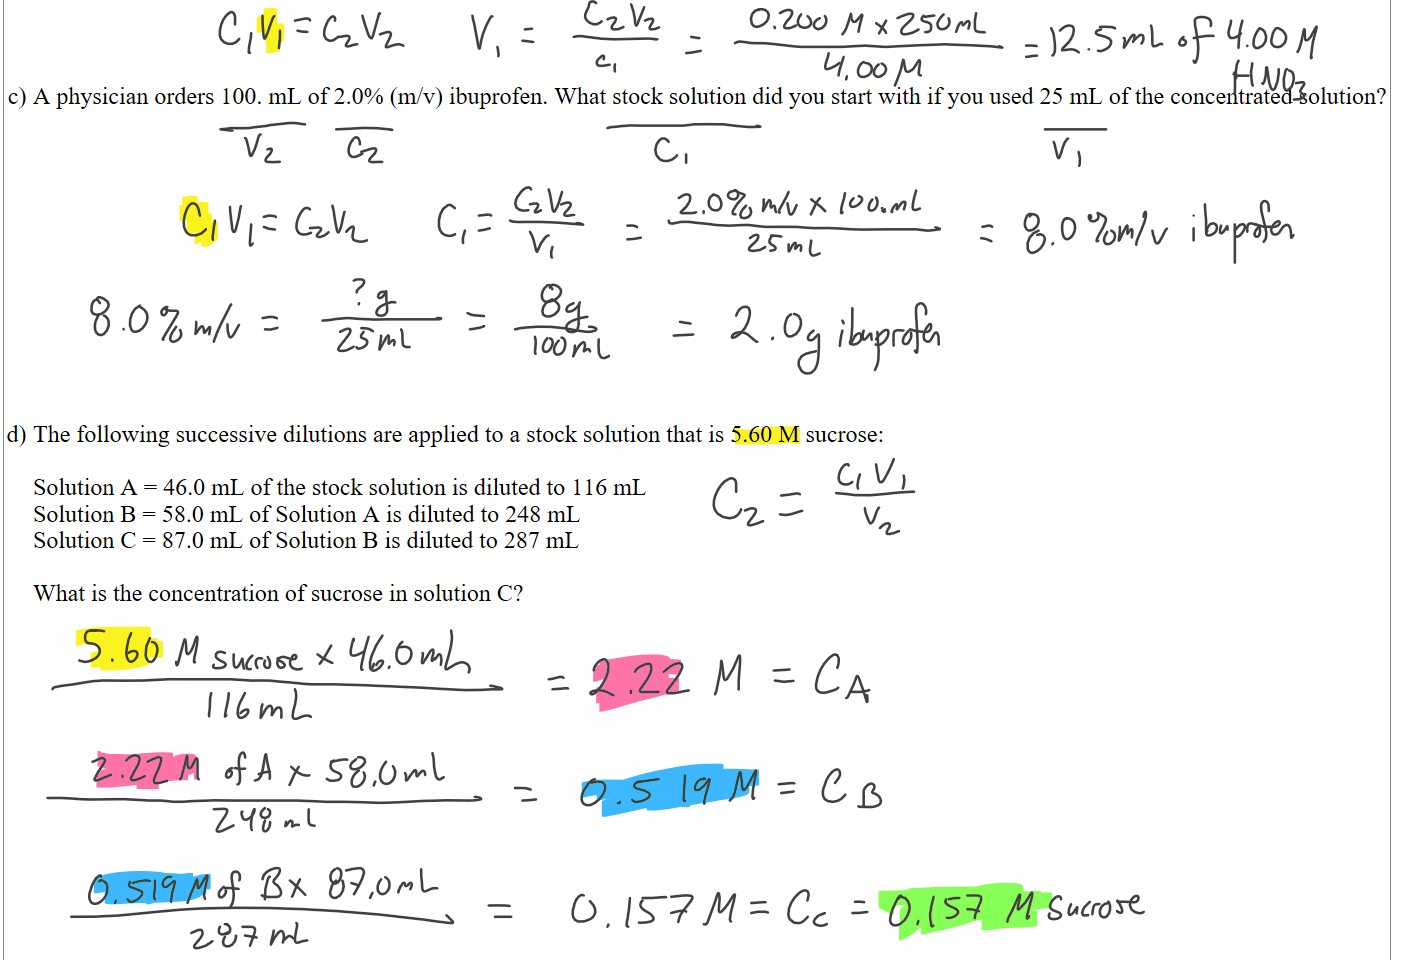 C₁V₁ = C₂V₂ V₁ = C₂V₂ / C₁ = 0.200 M x 250mL / 4.00 M = 12.5 mL of 4.00 M HNO₃
c) A physician orders 100. mL of 2.0% (m/v) ibuprofen. What stock solution did you start with if you used 25 mL of the concentrated solution?
V₂ C₂ C₁ V₁
C₁V₁ = C₂V₂ C₁ = C₂V₂ / V₁ = 2.0% m/v x 100.mL / 25 mL = 8.0 % m/v ibuprofen
8.0 % m/v = ? g / 25 mL = 8g / 100 mL = 2.0g ibuprofen
d) The following successive dilutions are applied to a stock solution that is 5.60 M sucrose:
Solution A = 46.0 mL of the stock solution is diluted to 116 mL
Solution B = 58.0 mL of Solution A is diluted to 248 mL
Solution C = 87.0 mL of Solution B is diluted to 287 mL
C₂ = C₁V₁ / V₂
What is the concentration of sucrose in solution C?
5.60 M sucrose x 46.0 mL / 116 mL = 2.22 M = C_A
2.22 M of A x 58.0 mL / 248 mL = 0.519 M = C_B
0.519 M of B x 87.0 mL / 287 mL = 0.157 M = C_C = 0.157 M sucrose